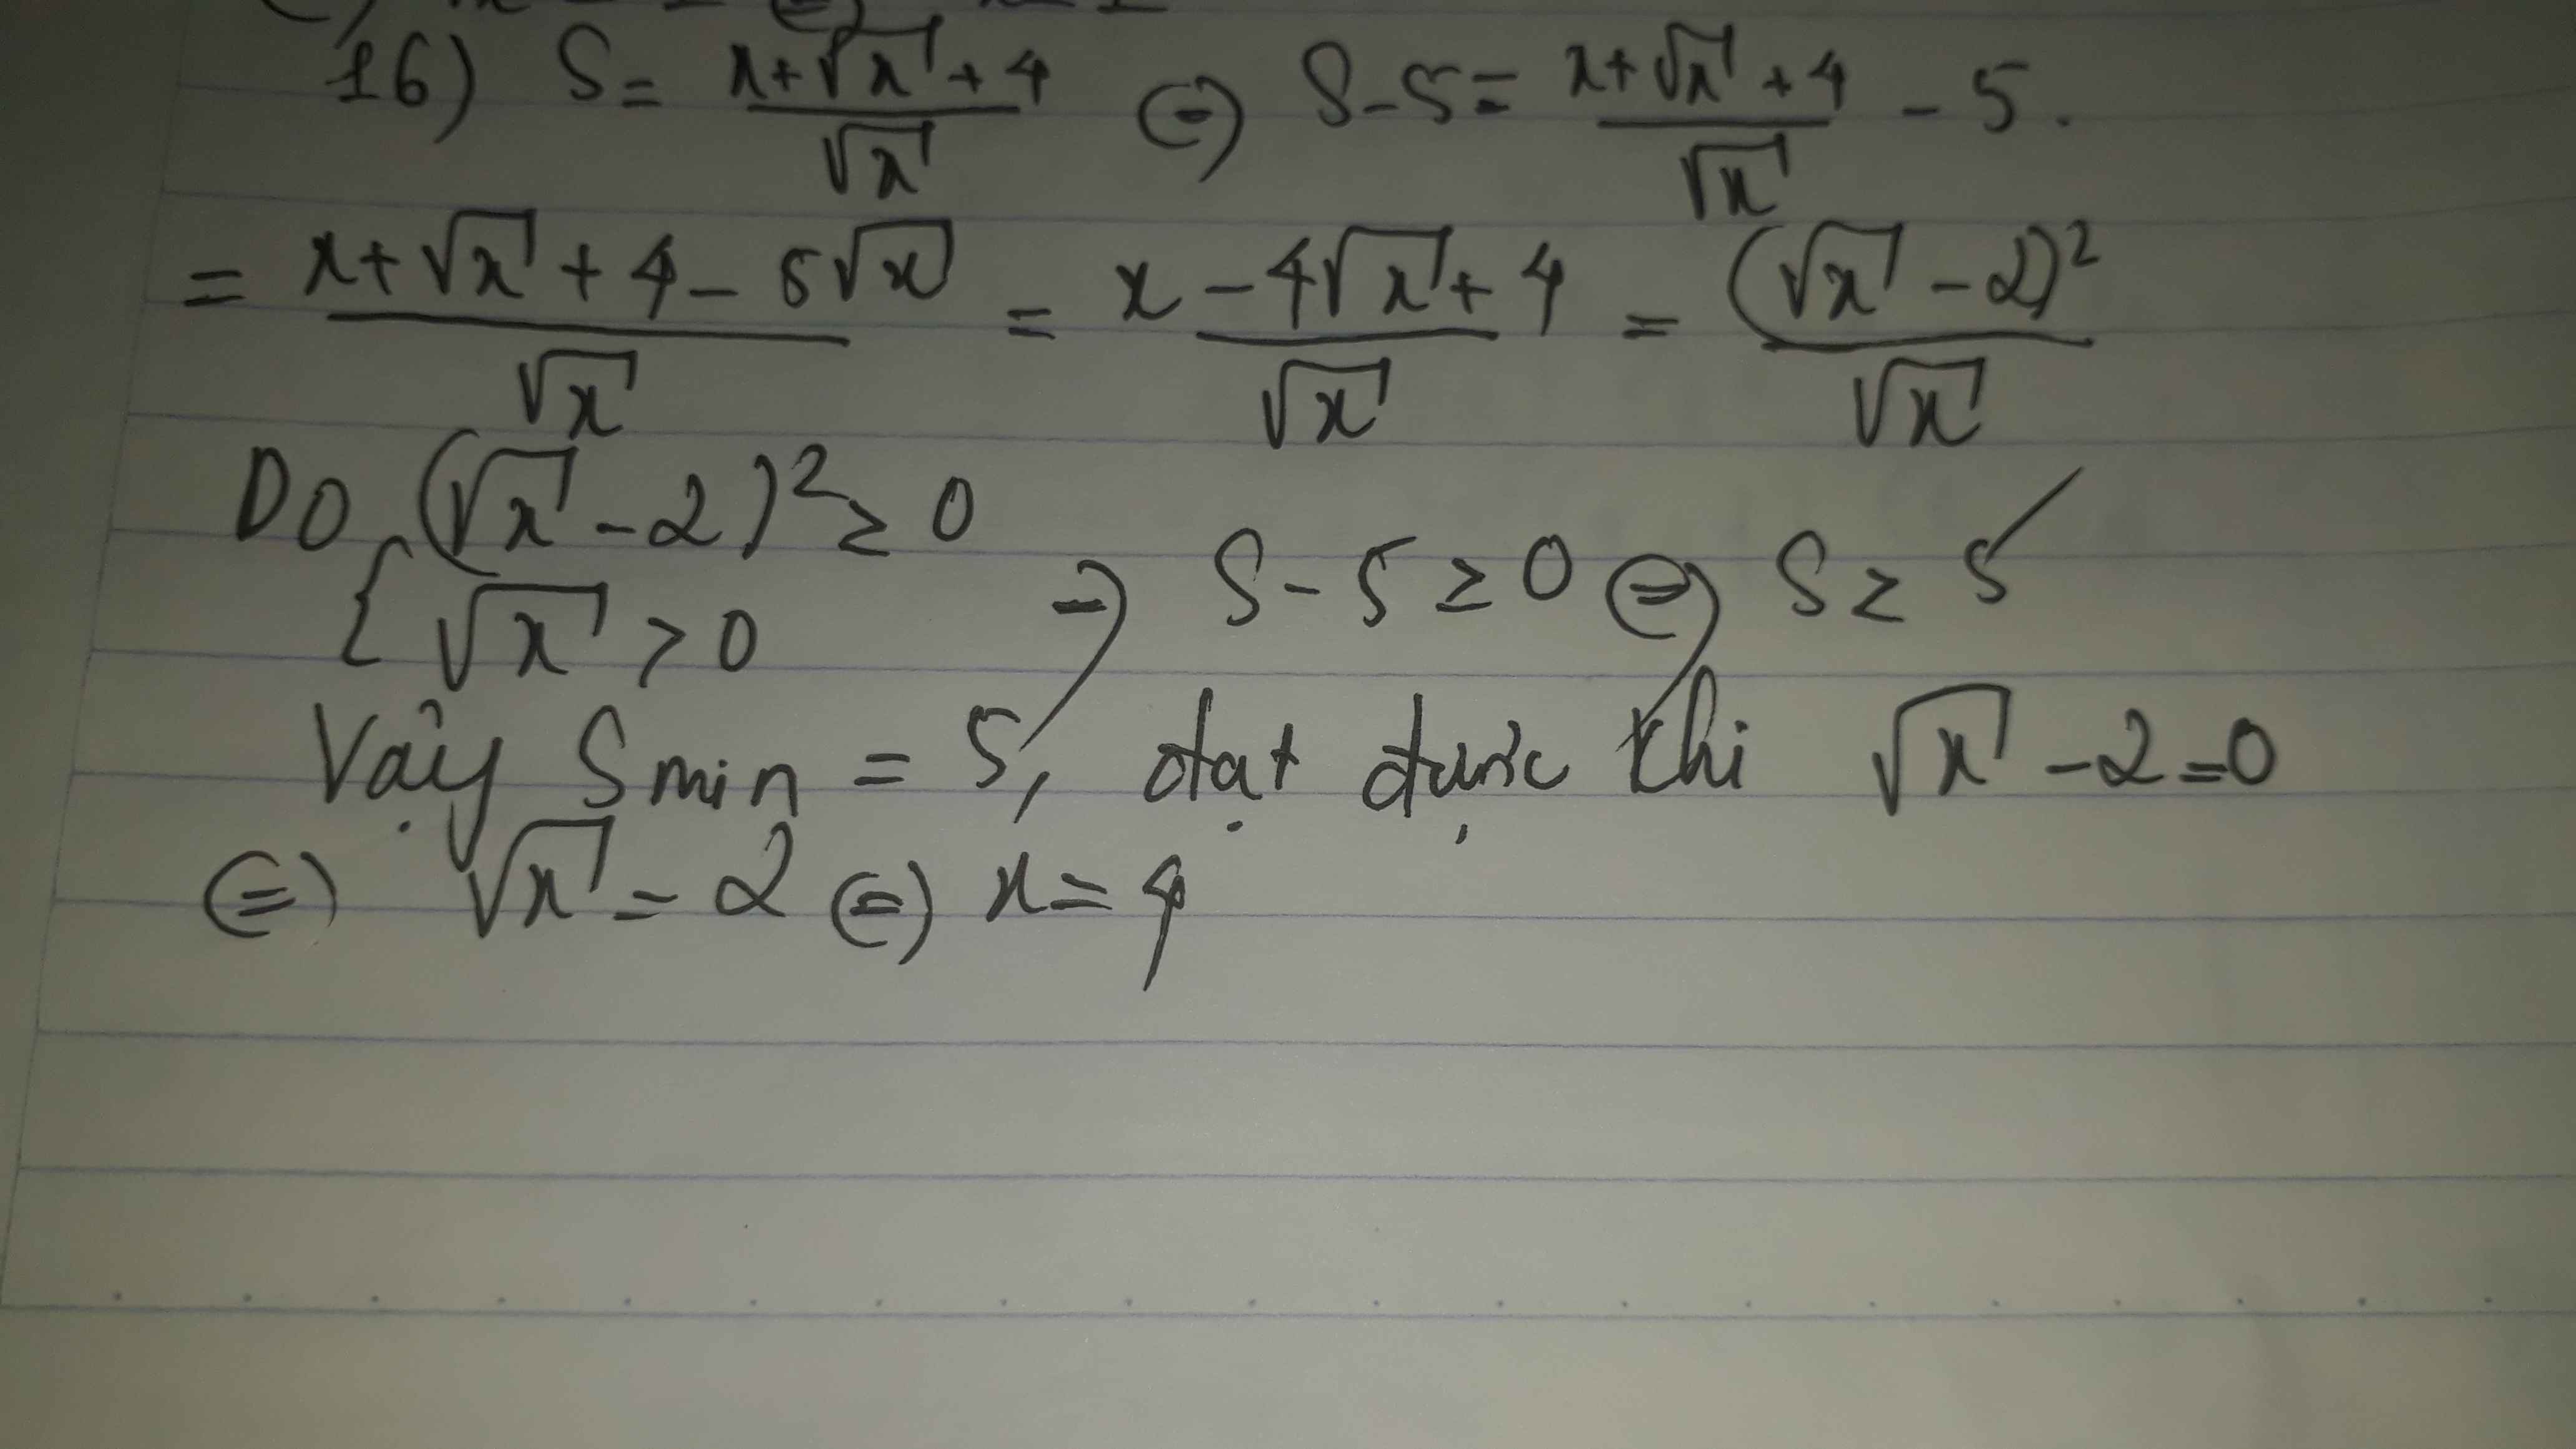 16) S = (x+√x+4)/√x ⇔ S-5 = (x+√x+4)/√x - 5.
= (x+√x+4-5√x)/√x = (x-4√x+4)/√x = (√x-2)²/√x
Do { (√x-2)² ≥ 0
√x > 0 ⇒ S-5 ≥ 0 ⇔ S ≥ 5
Vậy Smin = 5, đạt được khi √x -2=0
⇔ √x = 2 ⇔ x = 4